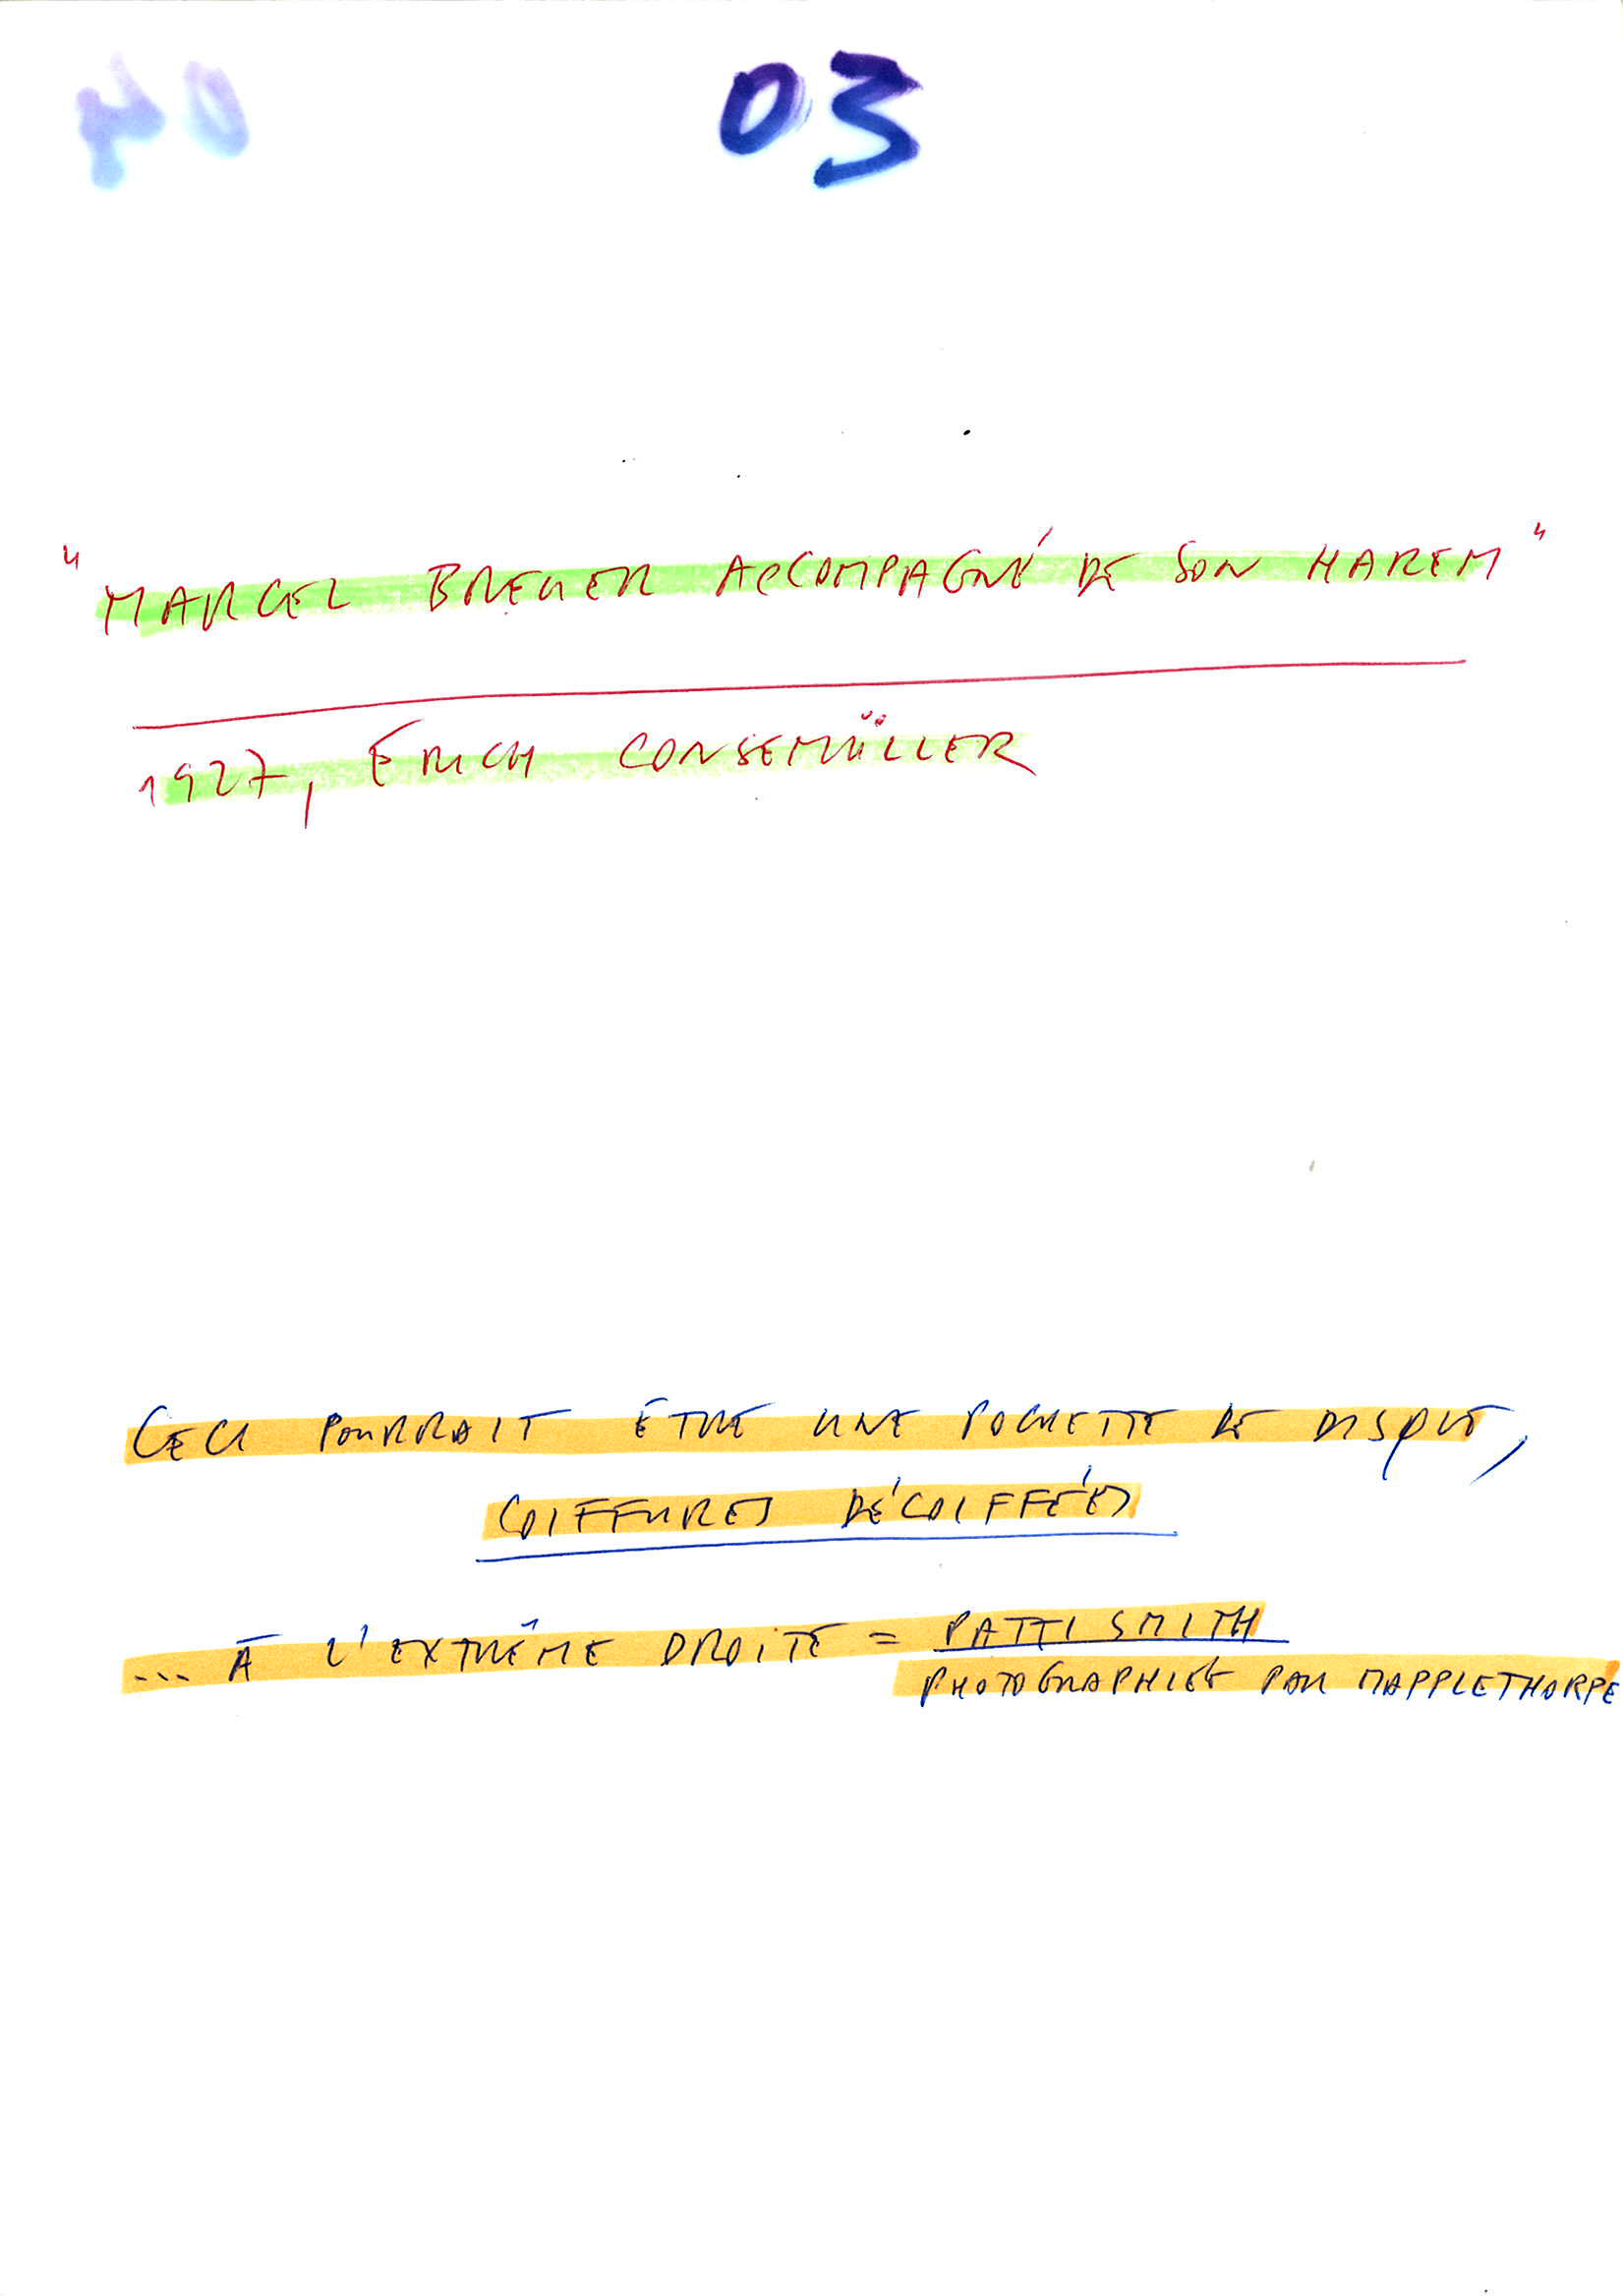 03
"MARCEL BREUER ACCOMPAGNÉ DE SON HAREM"
1927, ÉRICH CONSEMÜLLER
CECI POURRAIT ÊTRE UNE POCHETTE DE DISQUE,
COIFFURES DÉCOIFFÉES
... À L'EXTRÊME DROITE = PATTI SMITH
PHOTOGRAPHIÉE PAR MAPPLETHORPE